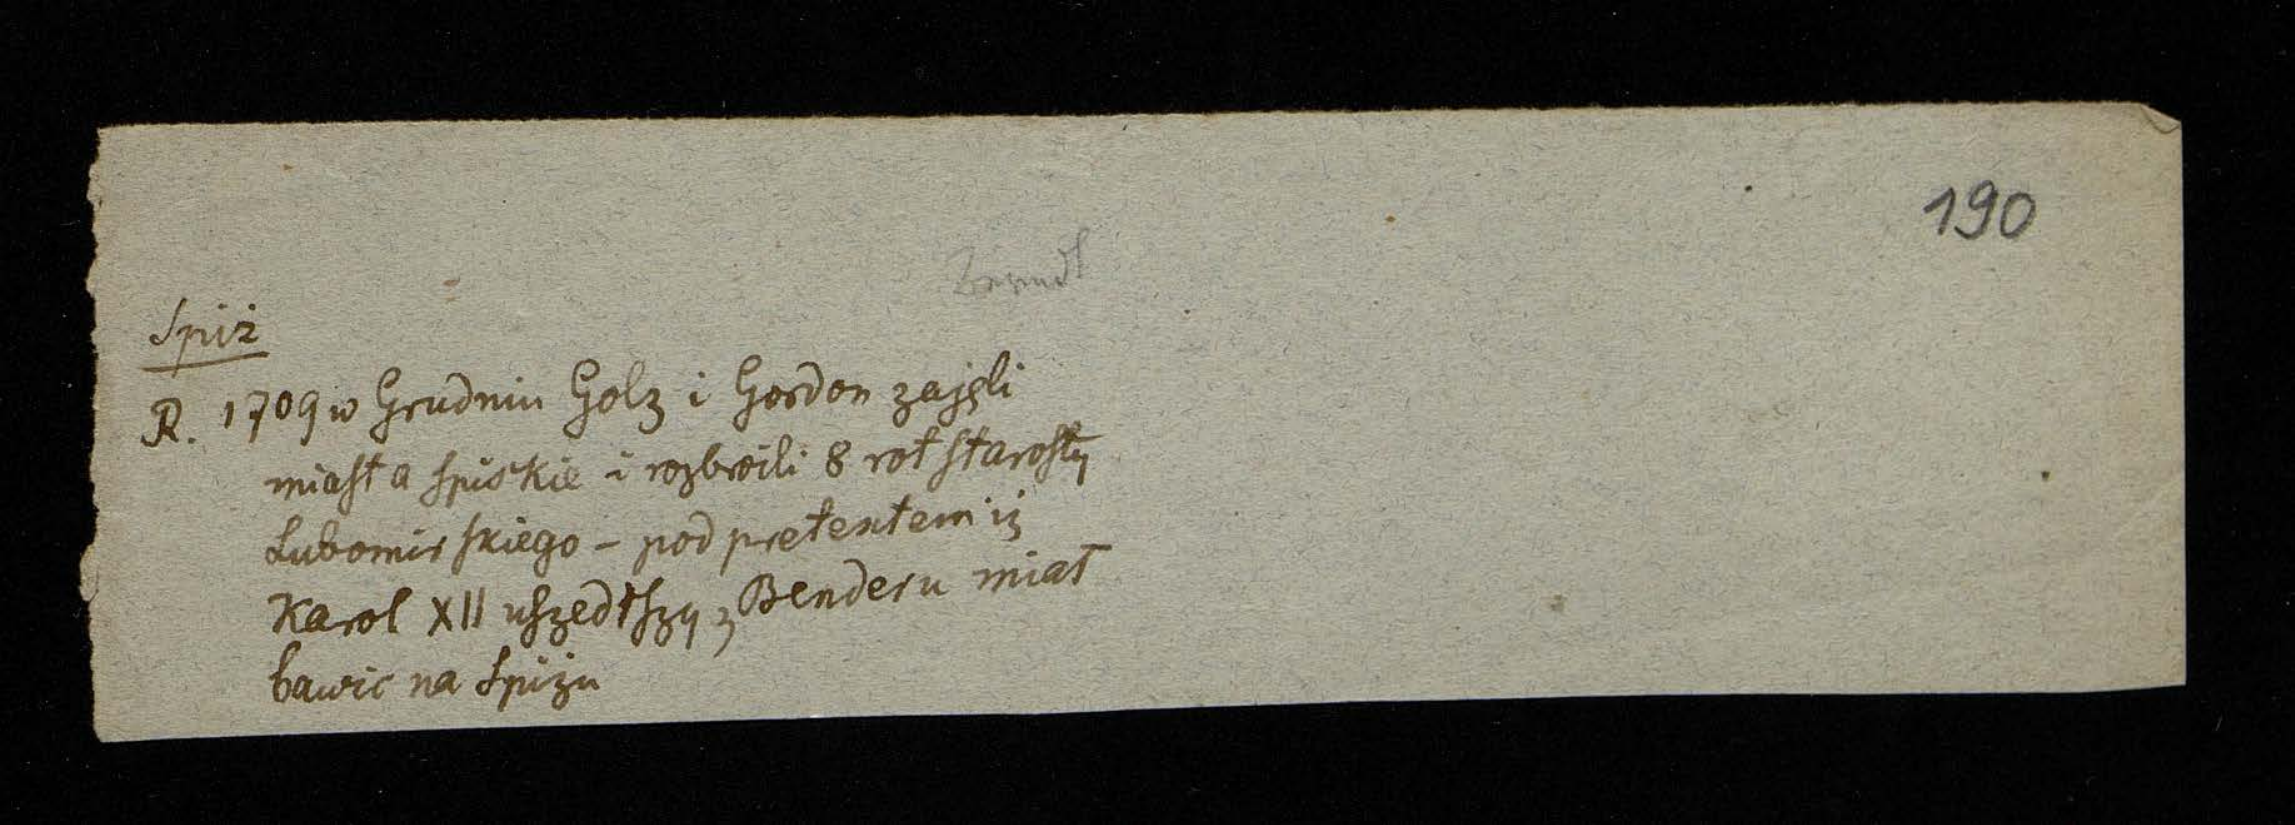 190
Spiż
R. 1709 w Grudniu Golz i Gordon zajęli
miasta Spiskie i rozbroili 8 rot Starosty
Lubomirskiego – pod pretextem iż
Karol XII uszedłszy z Benderu miał
bawic na Spiżu